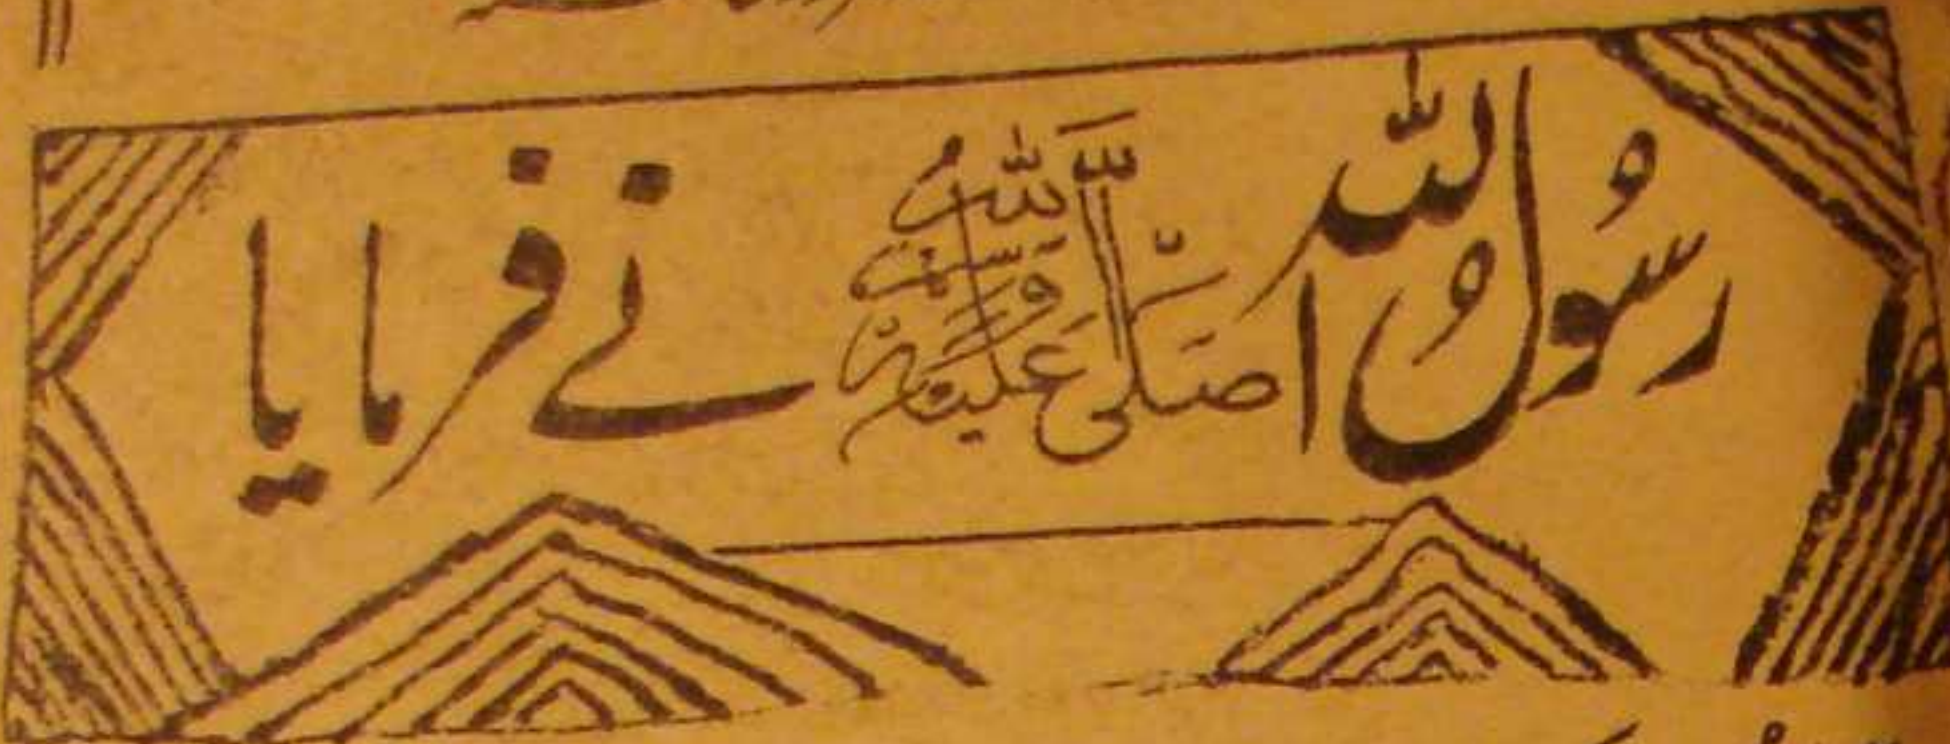 رسُول اللہ صَلَّی اللہُ عَلَیْہِ وَسَلَّم نے فرمایا